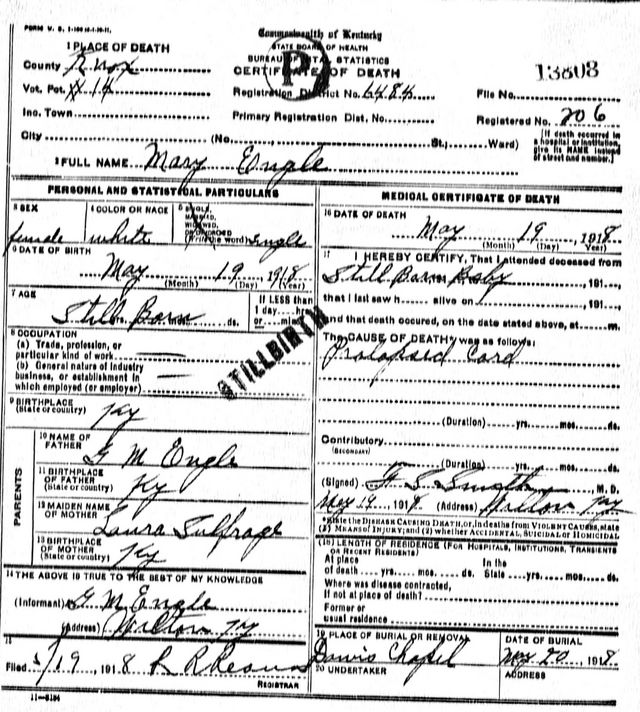 FORM V. S. 1-
Commonwealth of Kentucky
STATE BOARD OF HEALTH
BUREAU OF VITAL STATISTICS
CERTIFICATE OF DEATH
P
13808
1 PLACE OF DEATH
County Knox
Vot. Pct. # 14
Registration District No. 6484
File No.
Inc. Town
Primary Registration Dist. No.
Registered No. 206
City (No. St.; Ward)
[If death occurred in a hospital or institution, give its NAME instead of street and number.]
2 FULL NAME Mary Engle
PERSONAL AND STATISTICAL PARTICULARS
3 SEX female
4 COLOR OR RACE white
5 SINGLE, MARRIED, WIDOWED, OR DIVORCED (Write the word) Single
6 DATE OF BIRTH
May 19 1918
(Month) (Day) (Year)
7 AGE
Still Born ds.
If LESS than 1 day, hrs. or min.
STILLBIRTH
8 OCCUPATION
(a) Trade, profession, or
particular kind of work
(b) General nature of industry
business, or establishment in
which employed (or employer)
9 BIRTHPLACE
(State or country) Ky
PARENTS
10 NAME OF
FATHER G M Engle
11 BIRTHPLACE
OF FATHER
(State or country) Ky
12 MAIDEN NAME
OF MOTHER Laura Sulfrage
13 BIRTHPLACE
OF MOTHER
(State or country) Ky
14 THE ABOVE IS TRUE TO THE BEST OF MY KNOWLEDGE
(Informant) G M Engle
(Address) Wilton Ky
15
Filed 5/19, 1918
REGISTRAR
11-5184
MEDICAL CERTIFICATE OF DEATH
16 DATE OF DEATH
May 19 1918
(Month) (Day) (Year)
17 I HEREBY CERTIFY, That I attended deceased from
Still Born Baby, 191
that I last saw h alive on, 191
and that death occurred, on the date stated above, at m.
The CAUSE OF DEATH* was as follows:
Prolapsed Cord
(Duration) yrs. mos. ds.
Contributory
(SECONDARY)
(Duration) yrs. mos. ds.
(Signed) M. D.
May 19, 1918 (Address) Wilton Ky
*State the DISEASE CAUSING DEATH, or, in deaths from VIOLENT CAUSES, state
(1) MEANS OF INJURY; and (2) whether ACCIDENTAL, SUICIDAL or HOMICIDAL
(18) LENGTH OF RESIDENCE (FOR HOSPITALS, INSTITUTIONS, TRANSIENTS
OR RECENT RESIDENTS)
At place of death yrs. mos. ds. In the State yrs. mos. ds.
Where was disease contracted,
if not at place of death?
Former or
usual residence
19 PLACE OF BURIAL OR REMOVAL
Davis Chapel
DATE OF BURIAL
May 20, 1918
20 UNDERTAKER
ADDRESS